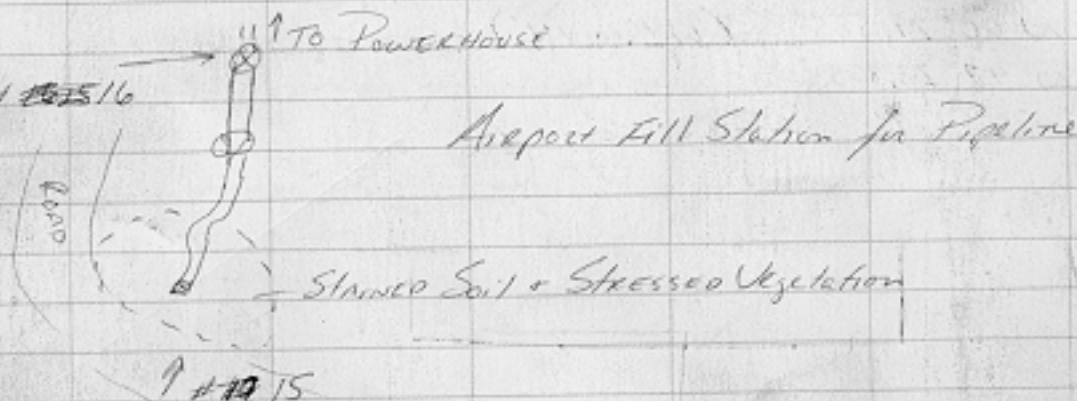 ↑ TO POWERHOUSE
16
Airport Fill Station for Pipeline
ROAD
Stained Soil + Stressed Vegetation
↑ # 15